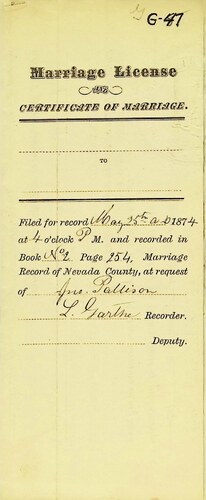 G-47
Marriage License
AND
CERTIFICATE OF MARRIAGE.
TO
Filed for record May 25th A.D 1874
at 4 o'clock P M. and recorded in
Book No 2 Page 254, Marriage
Record of Nevada County, at request
of Jno. Pattison
L. Garthe Recorder.
Deputy.